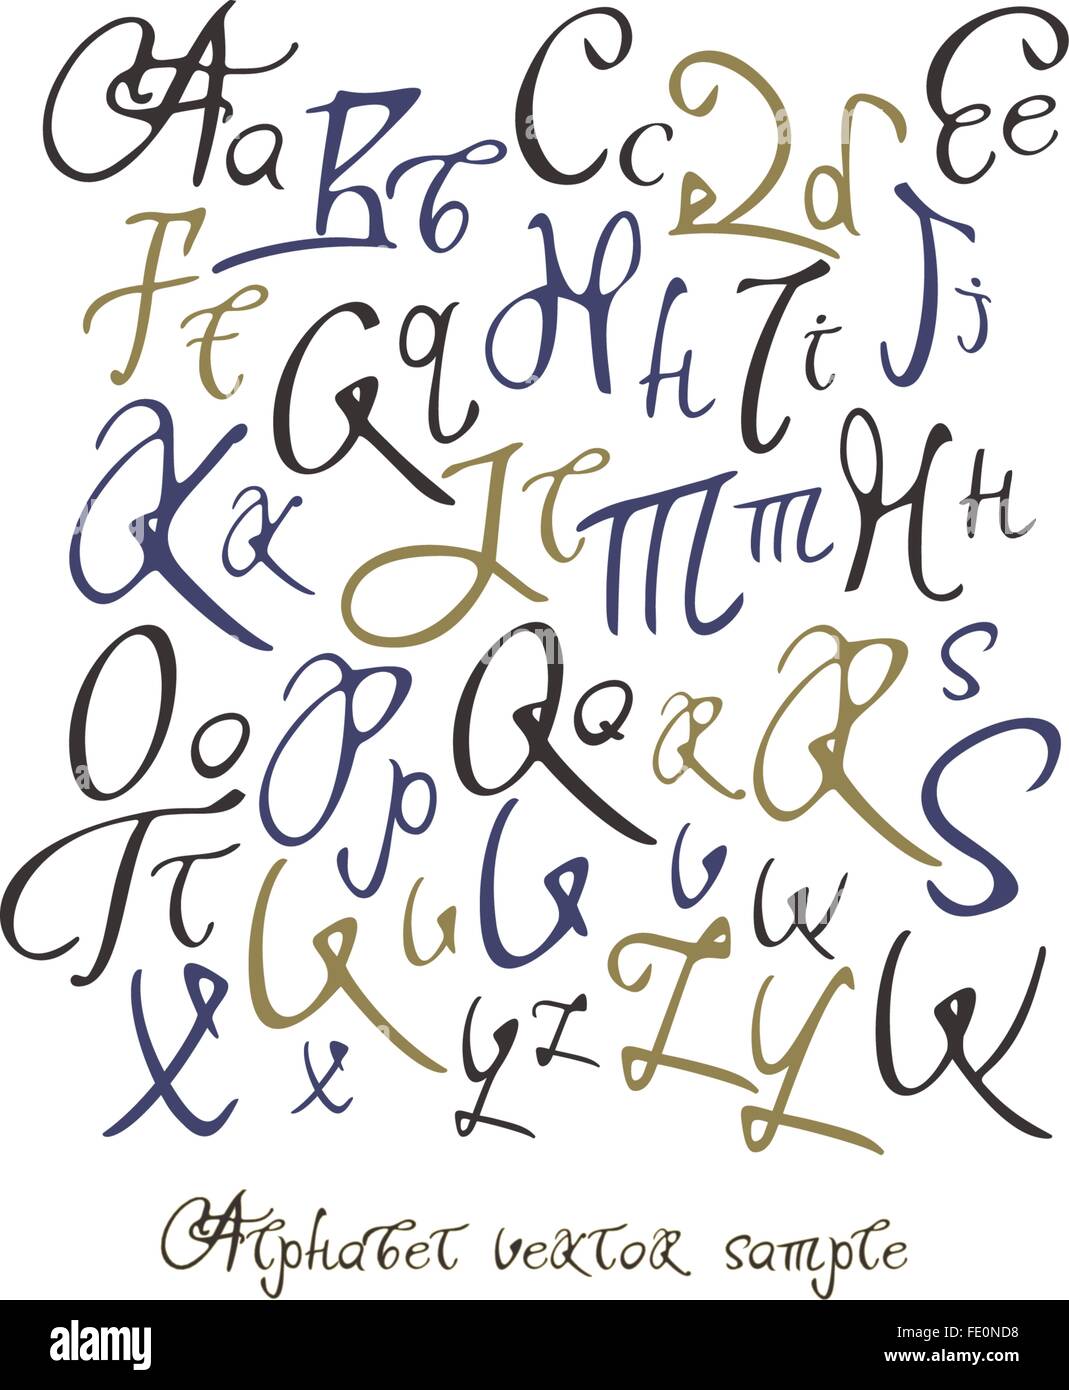 A a B b C c D d E e
F f G g H h I i J j
K k L l M m N n
O o P p Q q R r S s
T t U u V v W w
X x Y y Z z
Alphabet vektor sample
alamy
Image ID: FE0ND8
www.alamy.com